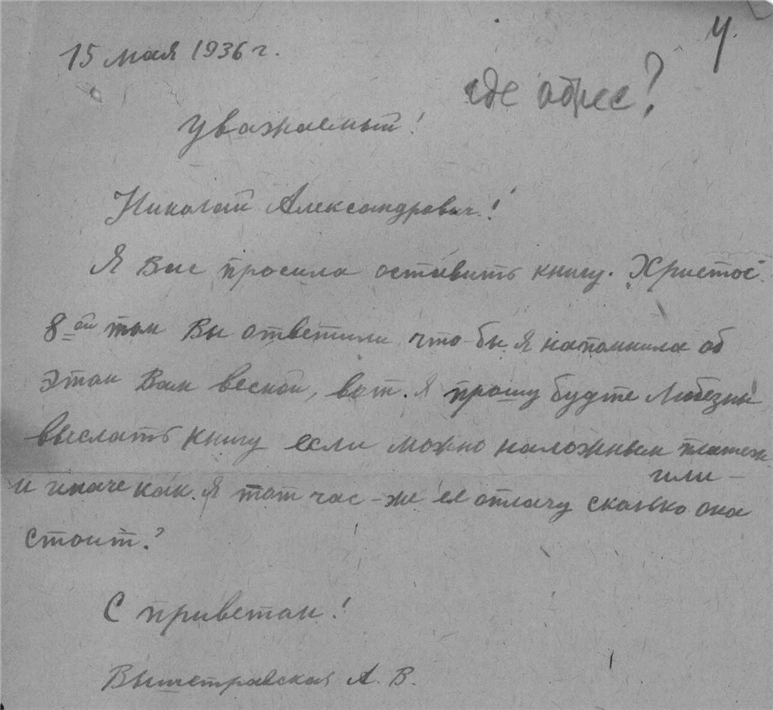 15 мая 1936 г.
Ч.
где адрес?
Уважаемый!
Николай Александрович!
Я Вас просила оставить книгу. Христос
8-ой том Вы ответили что-бы Я напомнила об
этом Вам весной, вот. Я прошу будте любезны
выслать книгу если можно наложным платеж
или –
и иначе как. Я тот час-же её оплачу сколько она
стоит?
С приветом!
А. В.